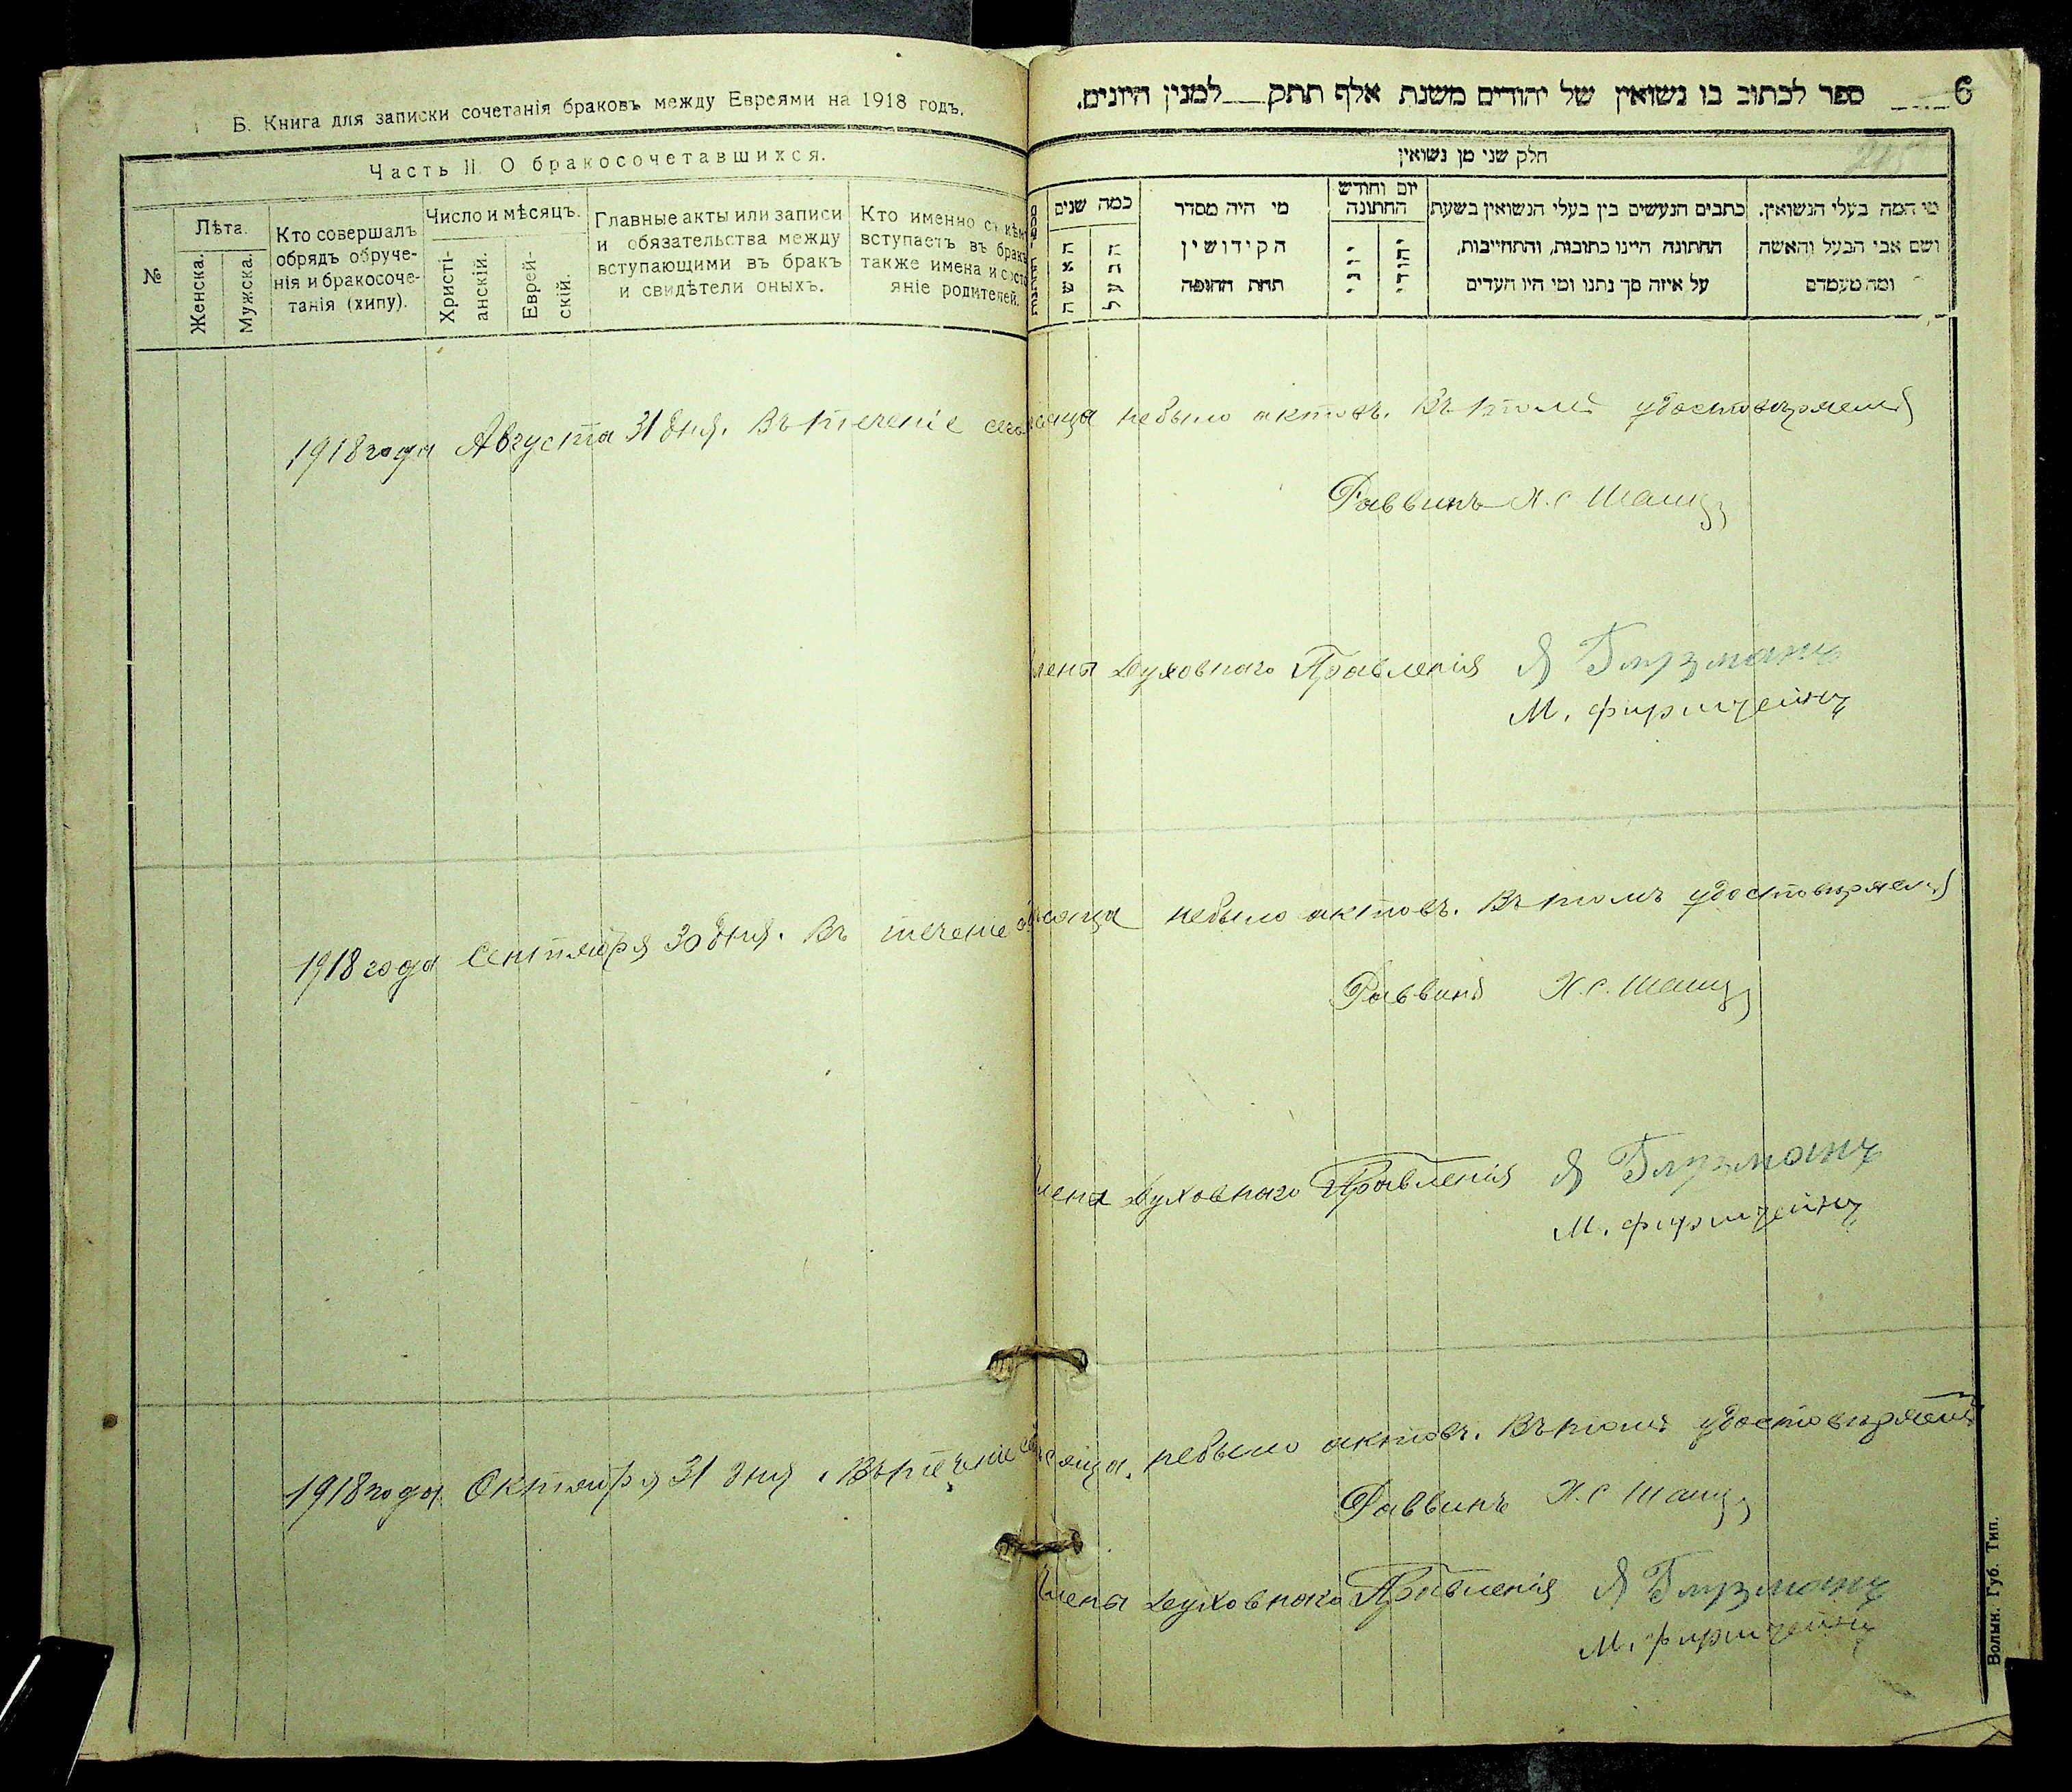 Б. Книга для записки сочетанія браковъ между Евреями на 1918 годъ.
Часть II. О бракосочетавшихся.
№
Лѣта.
Женска.
Мужска.
Кто совершалъ
обрядъ обруче-
нія и бракосоче-
танія (хипу).
Число и мѣсяцъ.
Христі-
анскій.
Еврей-
скій.
Главные акты или записи
и обязательства между
вступающими въ бракъ
и свидѣтели оныхъ.
Кто именно съ кѣм
вступаетъ въ бракъ
также имена и состо
яніе родителей.
6
ספר לכתוב בו נשואין של יהודים משנת אלף תתק למנין היונים.
חלק שני מן נשואין
מי המה בעלי הנשואין.
ושם אבי הבעל והאשה
ומה מעמדם
כתבים הנעשים בין בעלי הנשואין בשעת
החתונה היינו כתובות, והתחייבות,
על איזה סך נתנו ומי היו העדים
יום וחודש
החתונה
יהודי
יוני
מי היה מסדר
הקידושין
תחת החופה
כמה שנים
הבעל
האשה
1918 года Августа 31 дня. Въ теченіе сего мѣсяца небыло актовъ. Въ томъ удостовѣряемъ
Раввинъ Х.С. Шац
Члены Духовнаго Правленія Я Глузманъ
М. Фирштейнъ
1918 года Сентября 30 дня. Въ теченіе мѣсяца небыло актовъ. Въ томъ удостовѣряемъ
Раввинъ Х.С. Шац
Члены Духовнаго Правленія Я Глузманъ
М. Фирштейнъ
1918 года Октября 31 дня. Въ теченіе мѣсяца небыло актовъ. Въ томъ удостовѣряемъ
Раввинъ Х.С. Шац
Члены Духовнаго Правленія Я Глузманъ
М. Фирштейнъ
Волын. Губ. Тип.